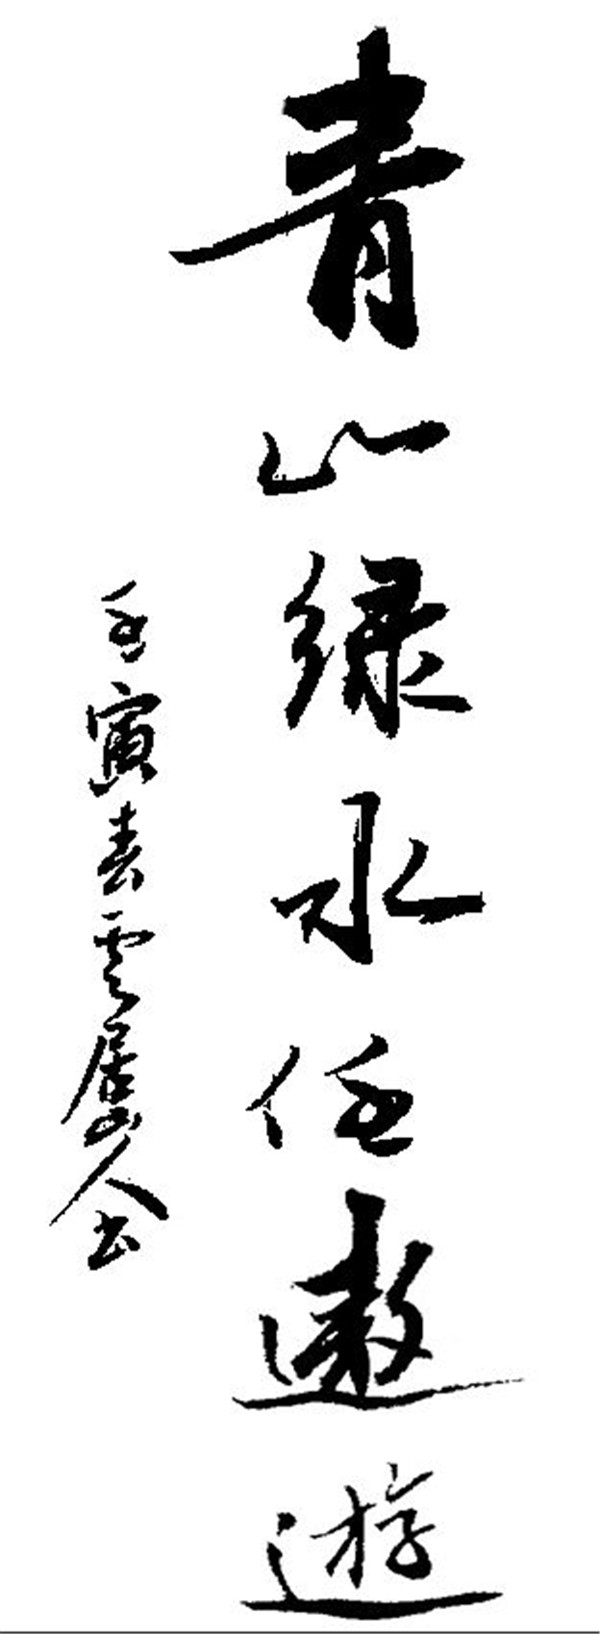 青山绿水任遨遊
壬寅春雲居山人书